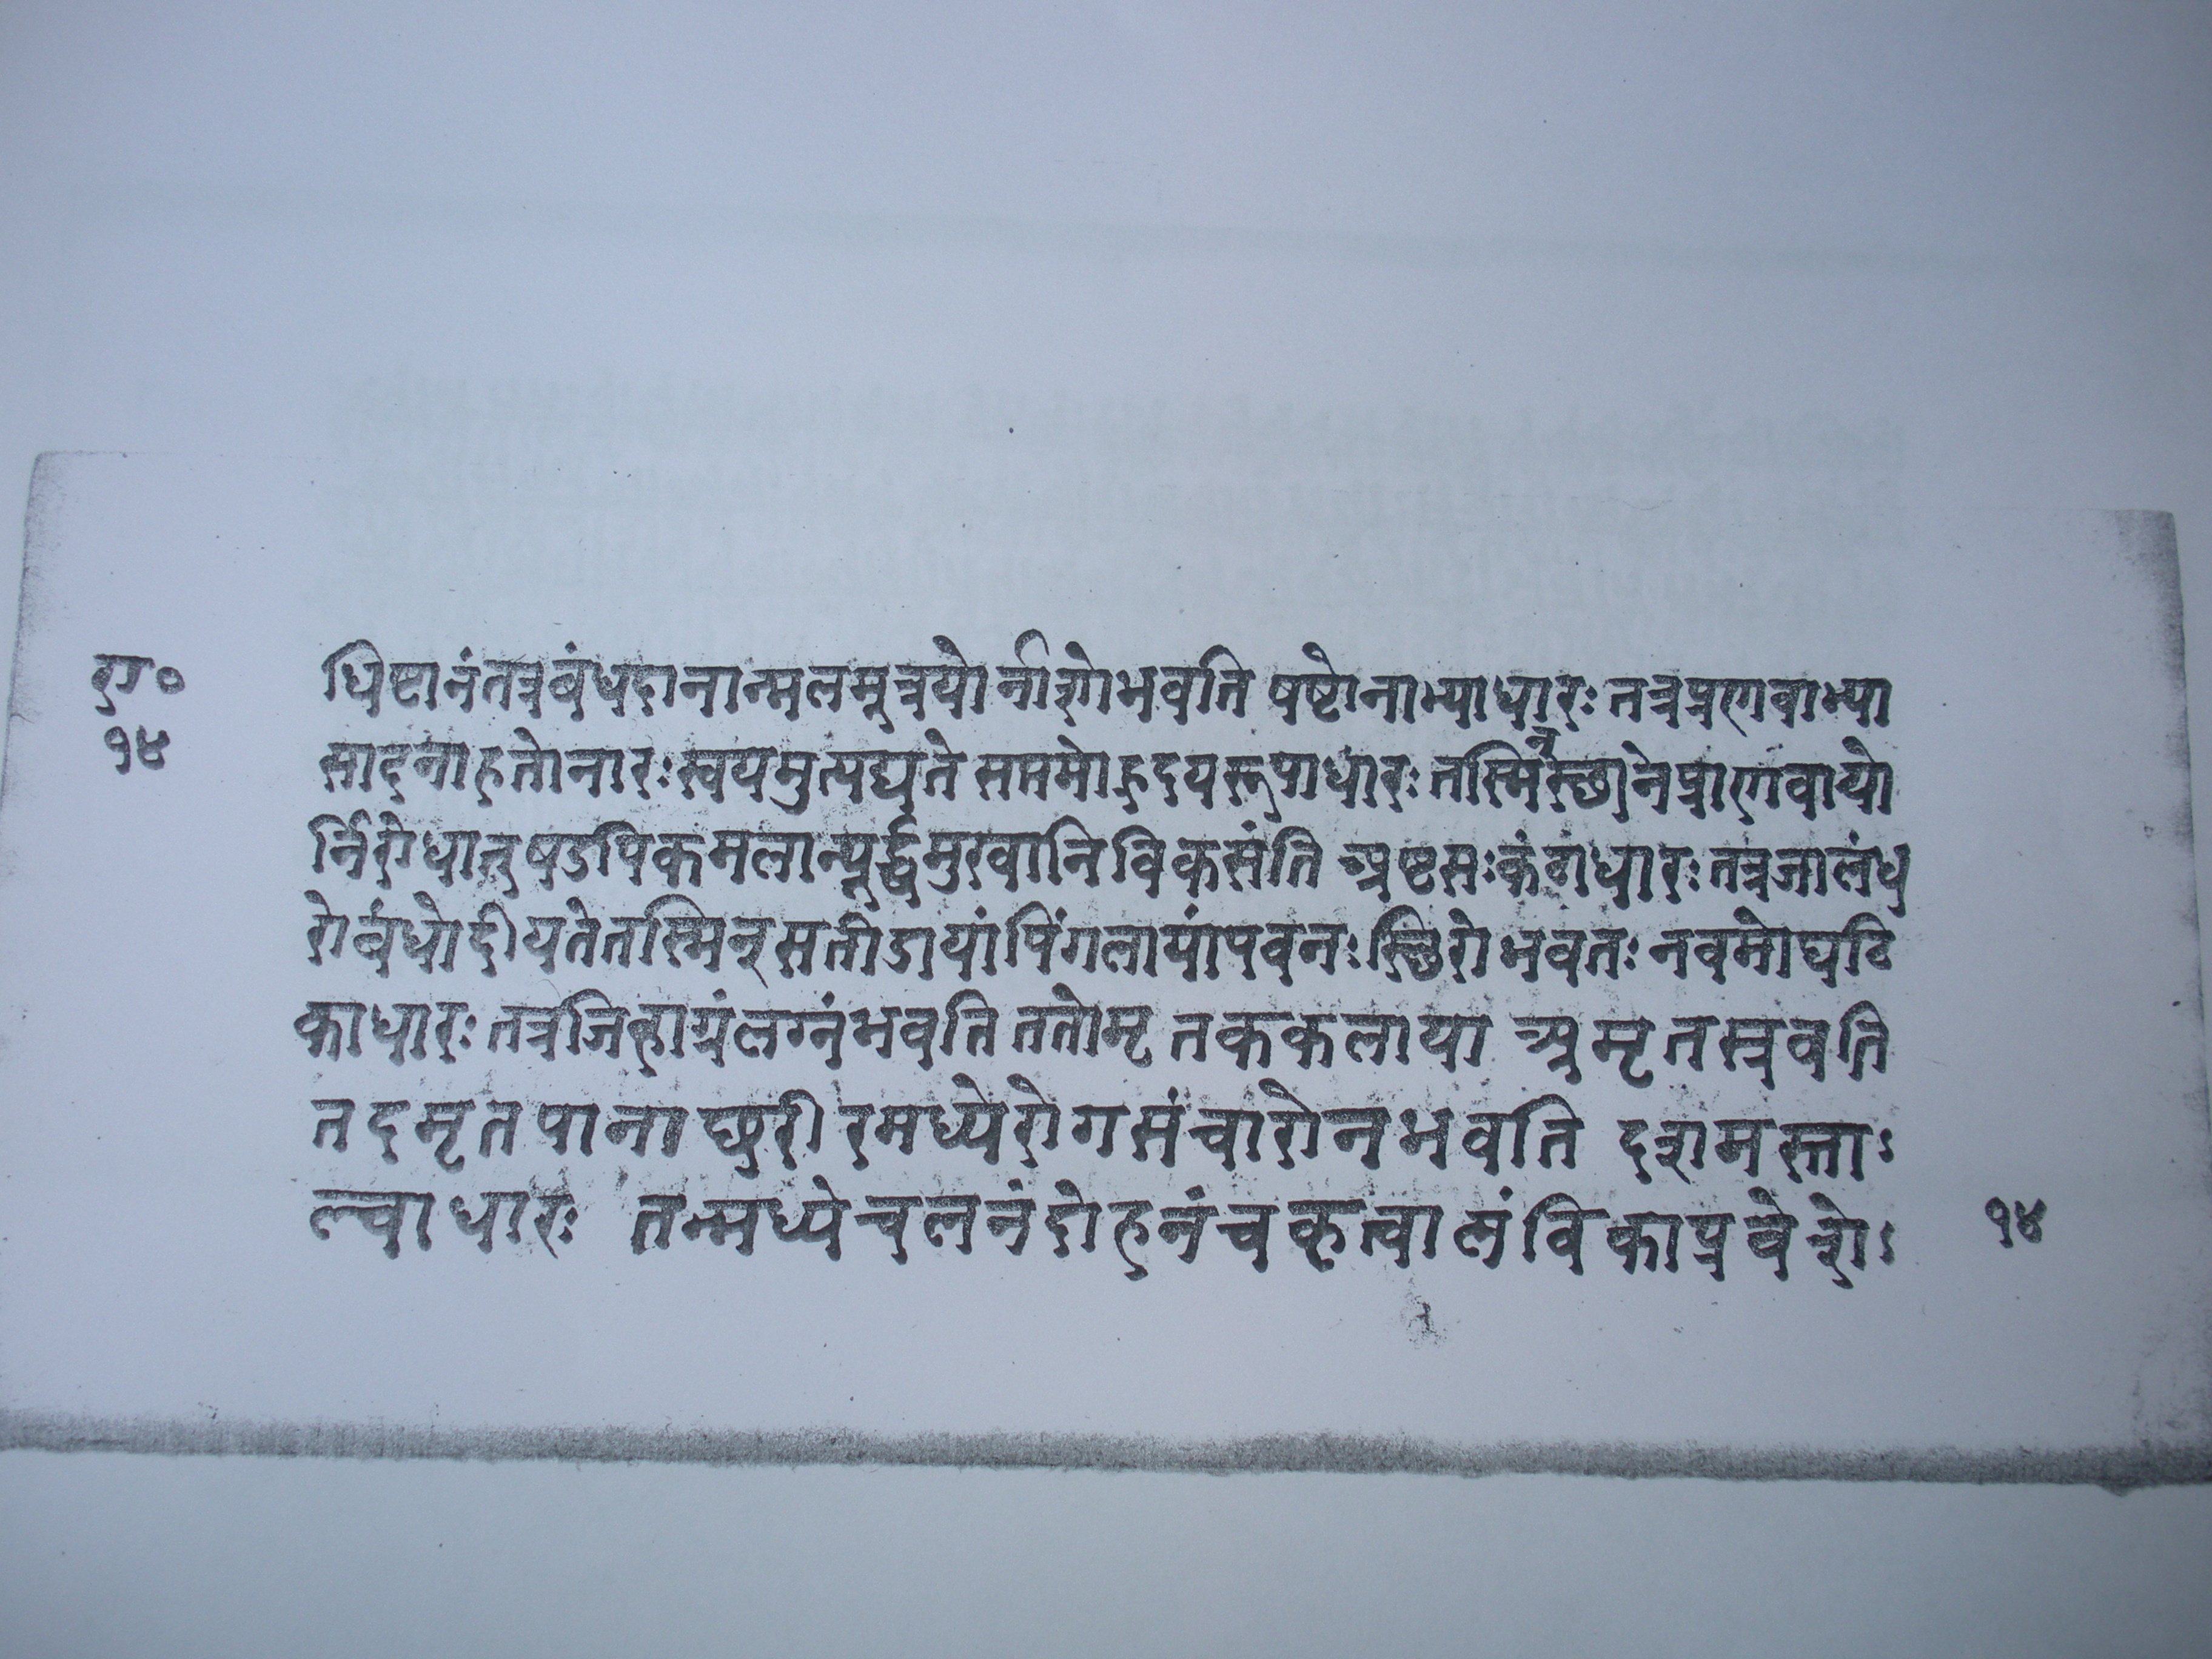 रा०
१४
धिष्टानंतत्रबंधदानान्मलमूत्रयोर्नाशोभवति षष्टोनाभ्याधारः तत्रप्रणवाभ्या
सादनाहतोनारः स्वयमुत्पद्यते सप्तमोहृदयरूपाधारः तस्मिंस्छानेप्राणवायो
र्निरोधात्तुषडपिकमलान्यूर्द्ध्वमुखानिविकसंति अष्टसःकंठाधारः तत्रजालंध
रोर्बंधोदीयतेतस्मिन्सतीडायांपिंगलायांपवनः स्छिरोभवतः नवमोघटि
काधारः तत्रजिह्वाग्रंलग्नंभवति ततोमृतककलाया अमृतस्त्रवति
तदमृतपानाछरीरमध्येरोगसंचारोनभवति दशमस्ताः
ल्वाधारः तन्मध्येचलनंदोहनंचकृत्वालंविकाप्रवेशेः
१४